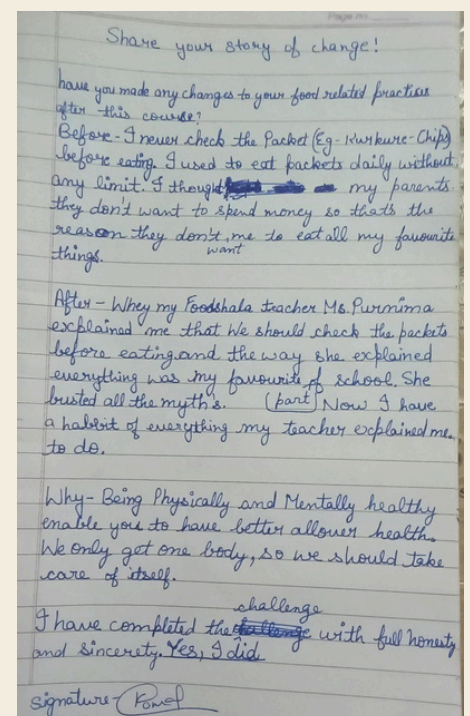 Page no
Share your story of change!
have you made any changes to your food related practices
after this course?
Before - I never check the Packet (Eg - Kurkure - Chips)
before eating. I used to eat packets daily without
any limit. I thought my parents
they don't want to spend money so that's the
reason they don't, me to eat all my favourite
want
things.
After - Whey my Foodshala teacher Ms. Purnima
explained me that We should check the packets
before eating and the way she explained
everything was my favourite, of school. She
busted all the myth's. (part) Now I have
a habbit of everything my teacher explained me
to do.
Why - Being Physically and Mentally healthy
enable you to have better allover health.
We only get one body, so we should take
care of itself.
challenge
I have completed the with full honesty
and sincerety. Yes, I did
signature -